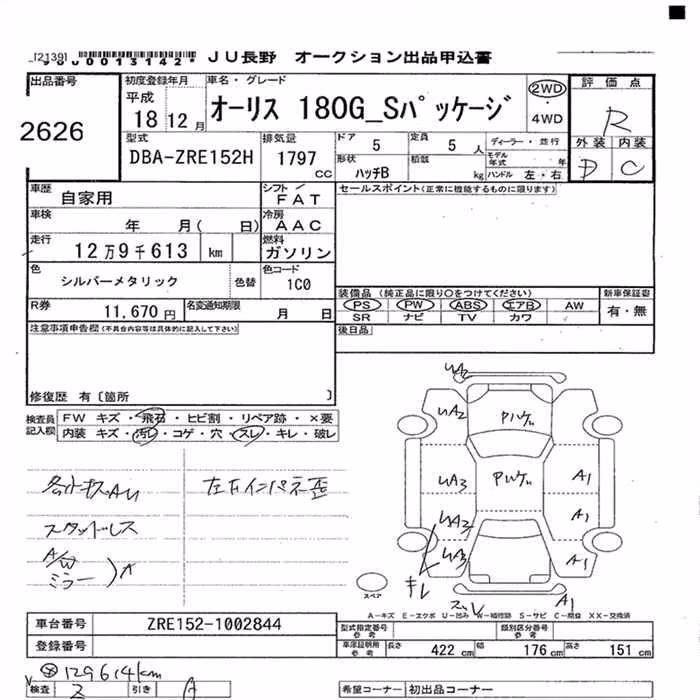 [2139] *0000013142* JU長野 オークション出品申込書
出品番号 2626
初度登録年月 平成 18 12 月
車名・グレード オーリス 180G_Sパッケージ
2WD・4WD
評価点 R
外装 D 内装 C
型式 DBA-ZRE152H
排気量 1797 CC
ドア 5 定員 5 人
形状 ハッチB 積載 kg
ディーラー・並行
モデル年式 年
ハンドル 左・右
車歴 自家用
シフト FAT
セールスポイント(正常に機能するものに限ります)
車検 年 月( 日)
冷房 AAC
走行 12万9千613 km
燃料 ガソリン
色 シルバーメタリック 色替
色コード 1C0
R券 11,670 円
名変通知期限 月 日
装備品 (純正品に限り○をつけてください)
PS PW ABS エアB AW
SR ナビ TV カワ
新車保証書 有・無
後日品
注意事項申告欄(不具合内容等は具体的に記入して下さい)
修復歴 有〔箇所 〕
検査員記入欄 FW キズ・飛石・ヒビ割・リペア跡・×要
内装 キズ・汚レ・コゲ・穴・スレ・キレ・破レ
左右インパネ歪
スタッドレス
A/W
ミラー
UA2
UA2
UA3
UA2
UA3
キレ
A1
A1
A1
A1
スペア
A-キズ E-エクボ U-凹み W-補修跡 S-サビ C-腐食 XX-交換済
車台番号 ZRE152-1002844
登録番号
型式指定番号 参考
類別区分番号 参考
車庫証明用 参考 長さ 422 cm 幅 176 cm 高さ 151 cm
129614km
検査 2 引き A
希望コーナー 初出品コーナー